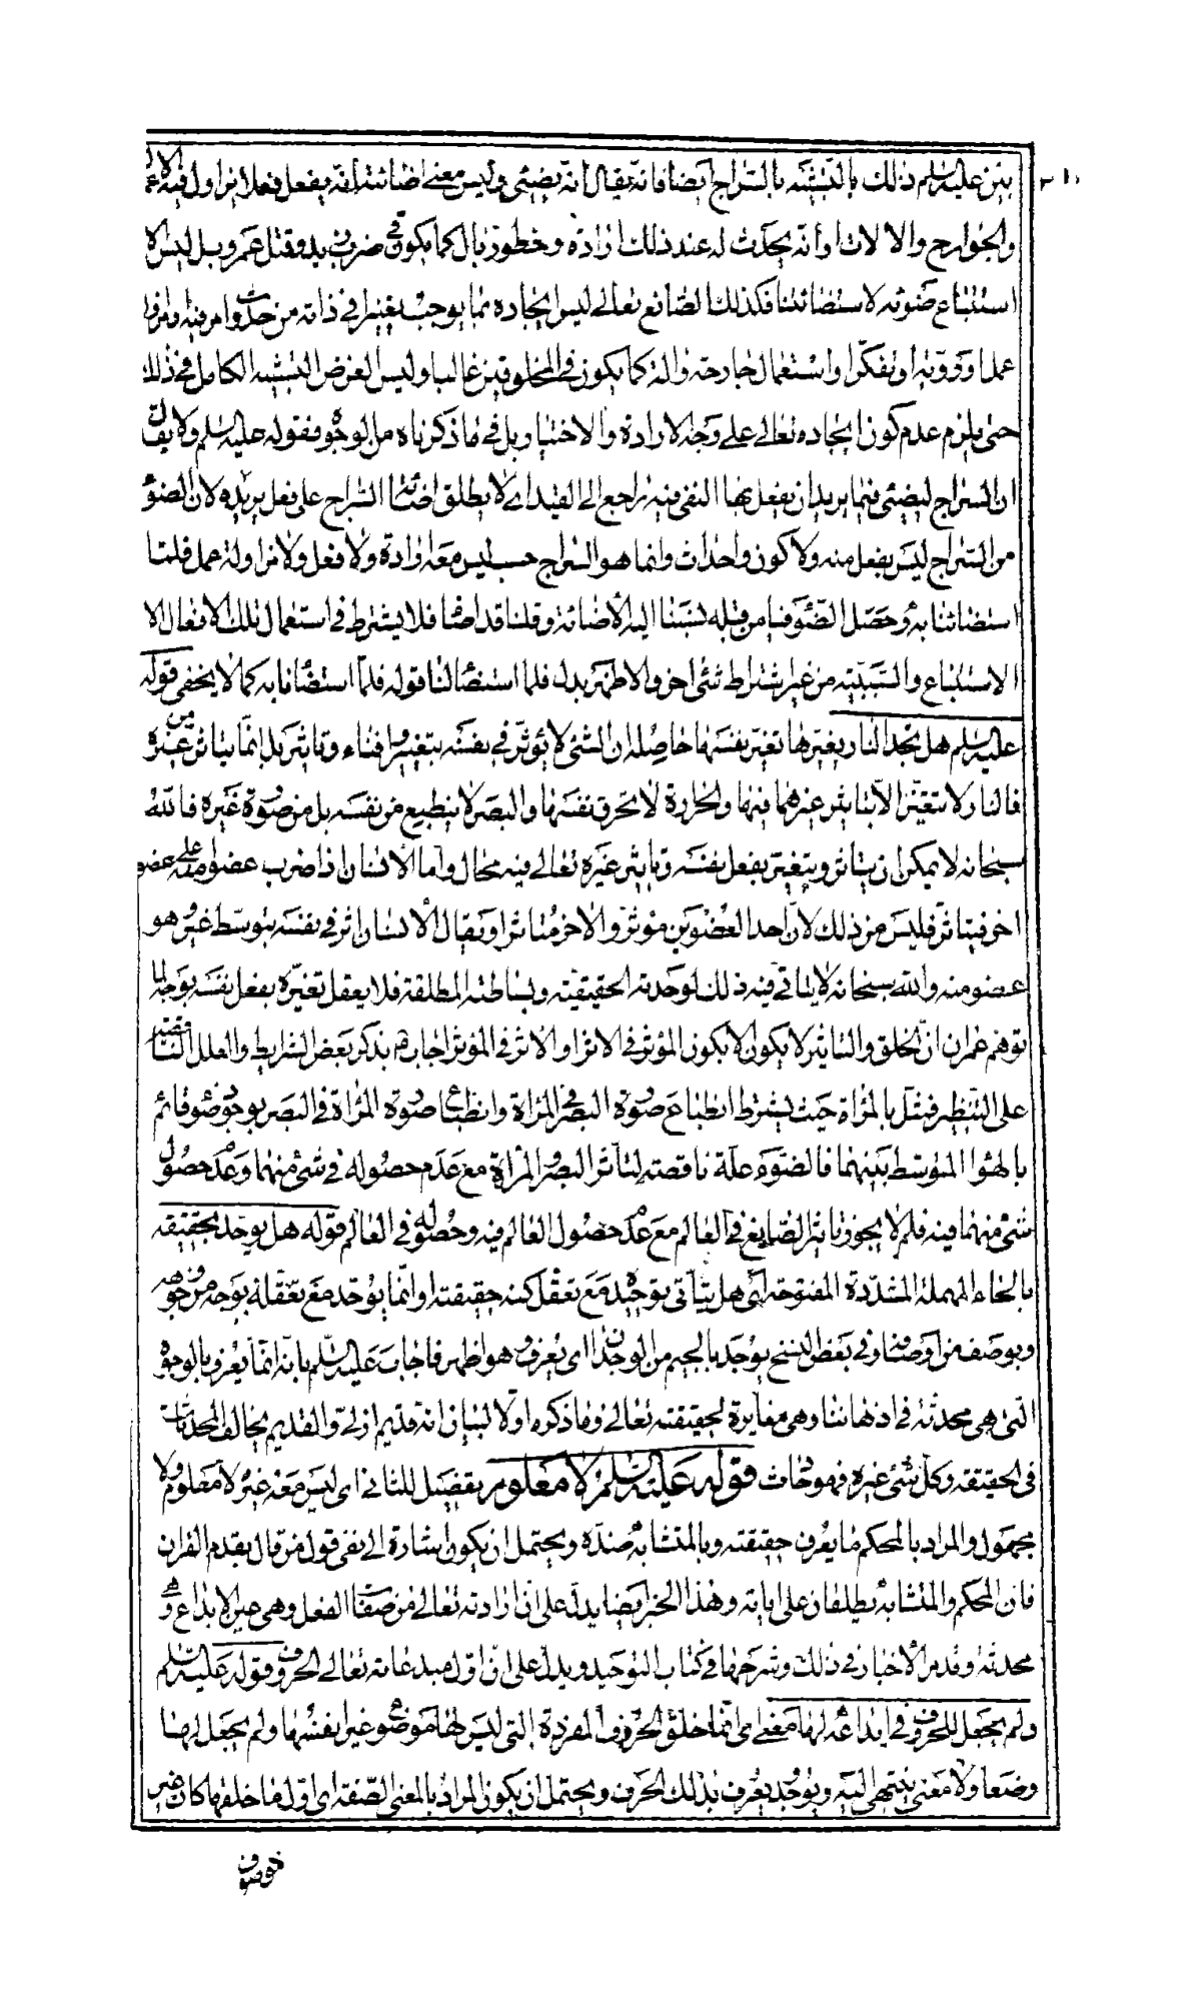 بين عليه السلم ذلك بالتشبيه بالسراج ايضا فانه يقال انه يضيئ وليس معنى اضائته انه يفعل فعلا بزاولة
والجوارح والالات او انه يحدث له عند ذلك ارادة وخطور بال كما يكون في ضرب زيد وقتل عمرو بل ليس الا
استتباع ضوئه لاستضائتنا فكذلك الصانع تعالى ليس ايجاده مما يوجب تغييرا في ذاته من حدوث امر فيه او مزاولة
عمل او روية او تفكر او استعمال جارحة والة كما يكون في المخلوقين غالبا وليس الغرض التشبيه الكامل في ذلك
حتى يلزم عدم كون ايجاده تعالى على وجه الارادة والاختيار بل في ما ذكرناه من الوجوه فقوله عليه السلم ولا يقال
ان السراج ليضيئ فيما يريد ان يفعل بها النفى فيه راجع الى القيد اى لا يطلق اضائة السراج على فعل يريده لان الضوء
من السراج ليس بفعل منه ولا كون واحداث وانما هو السراج حسب ليس معه ارادة ولا فعل ولا مزاولة عمل فلما
استضائنا به وحصل الضوء فينا من قبله نسبنا اليه الاضائة وقلنا قد اضاء فلا يشترط في استعمال تلك الافعال الا
الاستتباع والسببية من غير اشتراط شئ اخر والاظهر بدل فلما استضاء لنا قوله فلما استضأنا به كما لا يخفى قوله
عليه السلم هل تجد النار يغيرها تغير نفسها حاصله ان الشئ لا يؤثر في نفسه بتغيير وافناء وتاثير بل انما يتاثر من غيره
فالنار لا تتغير الا بتاثير غيرها فيها والحرارة لا تحرق نفسها والبصر لا ينطبع من نفسه بل من صورة غيره فالله
سبحانه لا يمكن ان يتاثر ويتغير بفعل نفسه وتاثير غيره تعالى فيه محال واما الانسان اذا ضرب عضوا منه على عضو
اخر فيتاثر فليس من ذلك لان احد العضوين مؤثر والاخر متاثر او يقال الانسان اثر في نفسه بتوسط غير هو
عضو منه والله سبحانه لا يتاتى فيه ذلك لوحدته الحقيقية وبساطته المطلقة فلا يعقل تغيره بفعل نفسه بوجه لما
توهم عمران ان الخلق والتاثير لا يكون الا بكون المؤثر في الاثر او الاثر في المؤثر اجاب بذكر بعض الشرايط والعلل الناقصة
على التنظير فمثل بالمراة حيث يشترط انطباع صورة البصر في المراة وانطباع صورة المراة في البصر بوجود ضوء قائم
بالهواء المتوسط بينهما فالضوء علة ناقصة لتاثر البصر والمراة مع عدم حصوله في شئ منهما وعدم حصول
شئ منهما فيه فلم لا يجوز تاثير الصانع في العالم مع عدم حصول العالم فيه وحصوله في العالم قوله هل يوحد بحقيقة
بالحاء المهملة المشددة المفتوحة اى هل يتاتى توحيده مع تعقل كنه حقيقته او انما يوحد مع تعقله بوجه من وجوهه
وبوصف من اوصافه وفي بعض النسخ يوجد بالجيم من الوجدان اى يعرف وهو اظهر فاجاب عليه السلم بانه انما يعرف بالوجوه
التي هي محدثة في اذهاننا وهي مغايرة لحقيقته تعالى وما ذكره اولا لبيان انه قديم ازلى والقديم يخالف المحدثات
في الحقيقة وكل شئ غيره فهو حادث قوله عليه السلم لا معلوم تفصيل للثاني اى ليس معه غيره لا معلوم ولا
مجهول والمراد بالمحكم ما يعرف حقيقته وبالمتشابه ضده ويحتمل ان يكون اشارة الى نفى قول من قال بقدم القران
فان المحكم والمتشابه يطلقان على اياته وهذا الخبر ايضا يدل على ان ارادته تعالى من صفات الفعل وهي عين الابداع وهي
محدثة وقد مر الاخبار في ذلك وشرحها في كتاب التوحيد ويدل على ان اول مبدعاته تعالى الحروف قوله عليه السلم
ولم يجعل للحروف في ابداعه لها معنى اى انما خلق الحروف المفردة التي ليس لها موضوع غير انفسها ولم يجعل لها
وضعا ولا معنى ينتهى اليه ويوجد يعرف بذلك الحرف ويحتمل ان يكون المراد بالمعنى الصفة اى اول ما خلقها كان غير
موصوف